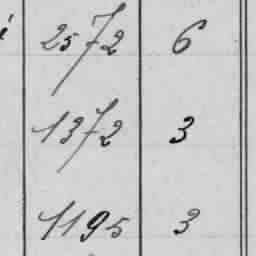 2572 6
1372 3
1195 3